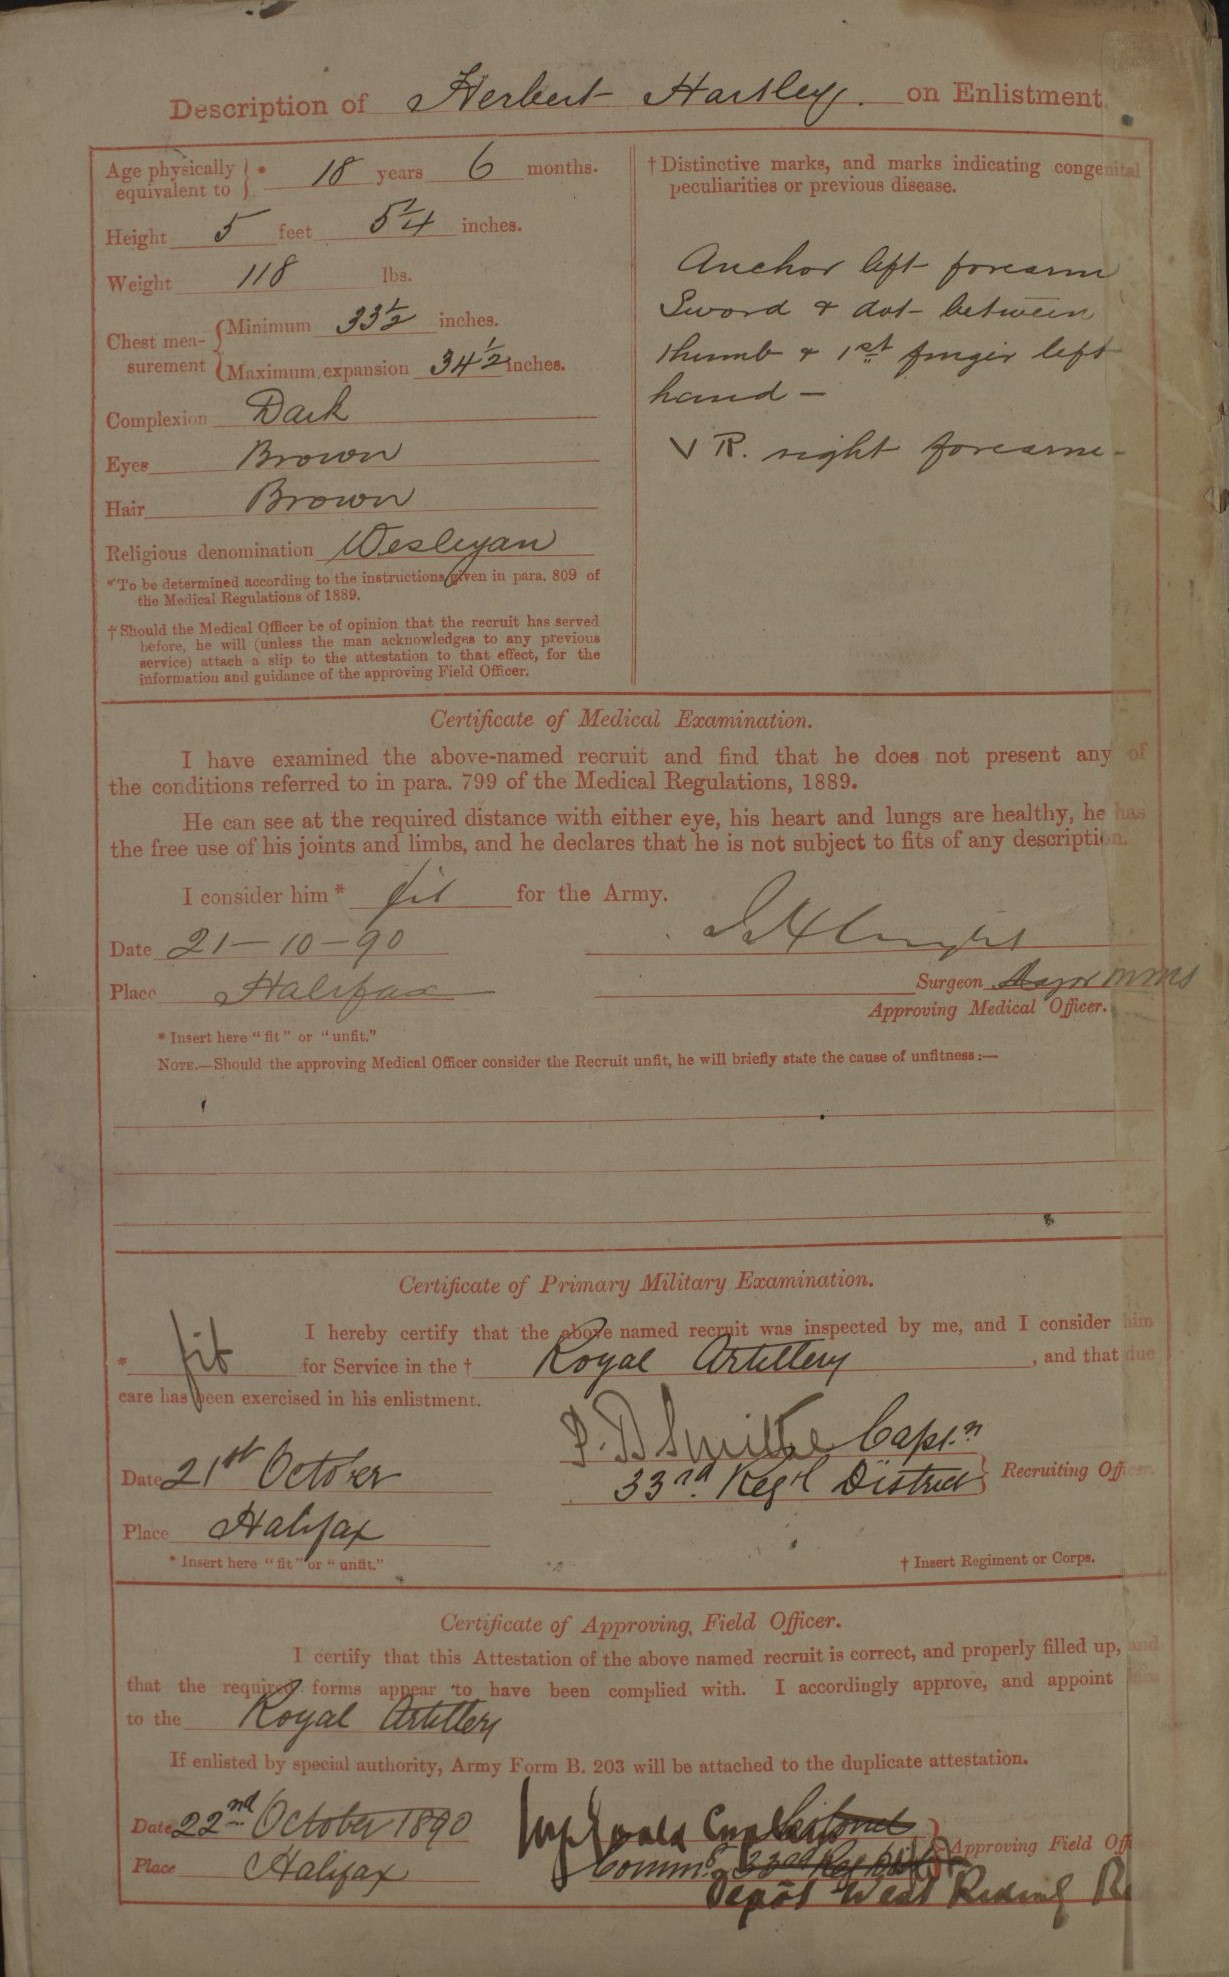 Description of Herbert Hartley. on Enlistment.
Age physically equivalent to * 18 years 6 months.
Height 5 feet 5 1/4 inches.
Weight 118 lbs.
Chest mea-surement { Minimum 33 1/2 inches.
Maximum expansion 34 1/2 inches.
Complexion Dark
Eyes Brown
Hair Brown
Religious denomination Wesleyan
* To be determined according to the instructions given in para. 809 of
the Medical Regulations of 1889.
† Should the Medical Officer be of opinion that the recruit has served
before, he will (unless the man acknowledges to any previous
service) attach a slip to the attestation to that effect, for the
information and guidance of the approving Field Officer.
† Distinctive marks, and marks indicating congenital
peculiarities or previous disease.
Anchor left forearm
Sword & dot between
thumb & 1st finger left
hand —
V R. right forearm -
Certificate of Medical Examination.
I have examined the above-named recruit and find that he does not present any of
the conditions referred to in para. 799 of the Medical Regulations, 1889.
He can see at the required distance with either eye, his heart and lungs are healthy, he has
the free use of his joints and limbs, and he declares that he is not subject to fits of any description.
I consider him * fit for the Army.
Date 21-10-90
Place Halifax
Surgeon Major
Approving Medical Officer.
* Insert here "fit" or "unfit."
NOTE.—Should the approving Medical Officer consider the Recruit unfit, he will briefly state the cause of unfitness:—
Certificate of Primary Military Examination.
I hereby certify that the above named recruit was inspected by me, and I consider him
* fit for Service in the † Royal Artillery, and that due
care has been exercised in his enlistment.
Capt.n
Date 21st October 33rd Reg'l District } Recruiting Officer.
Place Halifax
* Insert here "fit" or "unfit." † Insert Regiment or Corps.
Certificate of Approving Field Officer.
I certify that this Attestation of the above named recruit is correct, and properly filled up, and
that the required forms appear to have been complied with. I accordingly approve, and appoint him
to the Royal Artillery
If enlisted by special authority, Army Form B. 203 will be attached to the duplicate attestation.
Date 22nd October 1890
Place Halifax Comm.g 33rd Reg Dist } Approving Field Off
Depôt West Riding R